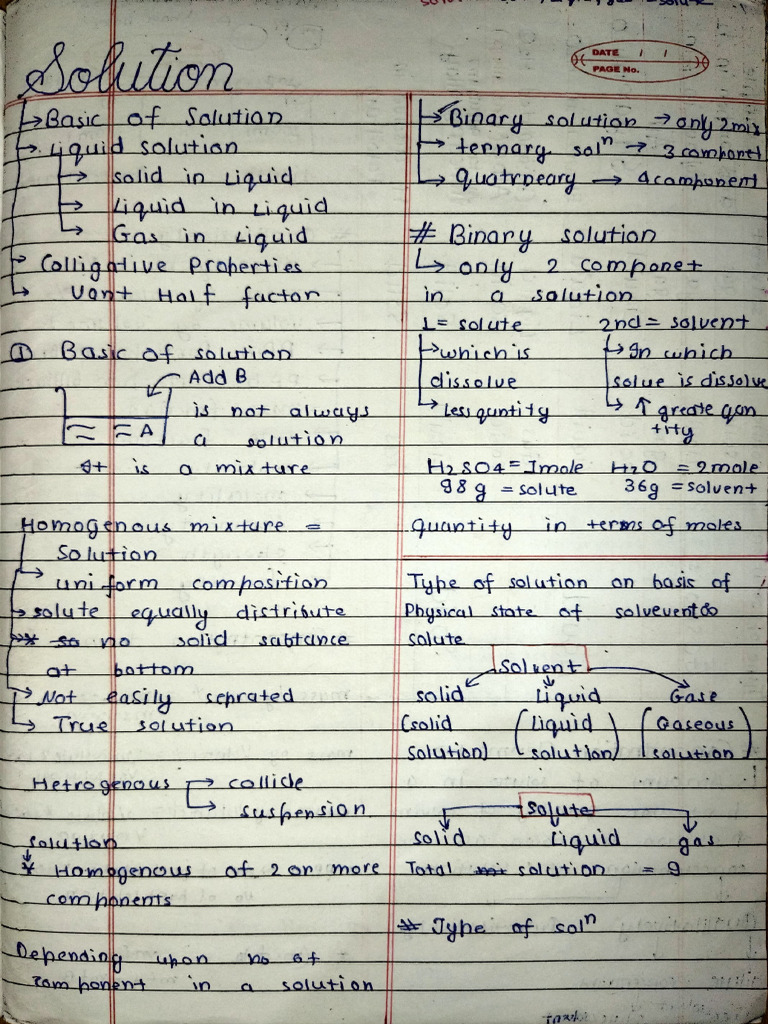 Solution
DATE / /
PAGE No.
→ Basic of Solution
→ Liquid solution
→ solid in Liquid
→ Liquid in Liquid
→ Gas in Liquid
→ Colligative Properties
→ Vant Half factor
① Basic of solution
Add B
A
is not always
a solution
It is a mixture
Homogenous mixture =
Solution
→ uniform composition
→ solute equally distribute
→* no solid sabtance
at bottom
→ Not easily seprated
→ True solution
Hetrogenous → collide
→ suspension
solution
* Homogenous of 2 or more
components
Depending upon no of
component in a solution
→ Binary solution → only 2 mix
→ ternary solⁿ → 3 componet
→ quatrneary → 4 component
# Binary solution
→ only 2 componet
in a solution
1 = solute 2nd = solvent
→ which is → In which
dissolve solue is dissolve
→ less quntity → ↑ greate qan
tity
H2SO4 = 1mole H2O = 2mole
98 g = solute 36g = solvent
quantity in terms of moles
Type of solution on basis of
Physical state of
solute
Solvent
solid Liquid Gase
(solid (Liquid (Gaseous
solution) solution) solution)
Solute
solid Liquid gas
Total solution = 9
# Type of solⁿ